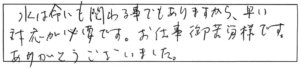 水は命にも関わる事でもありますから、早い
対応が必要です。お仕事御苦労様です。
ありがとうございました。